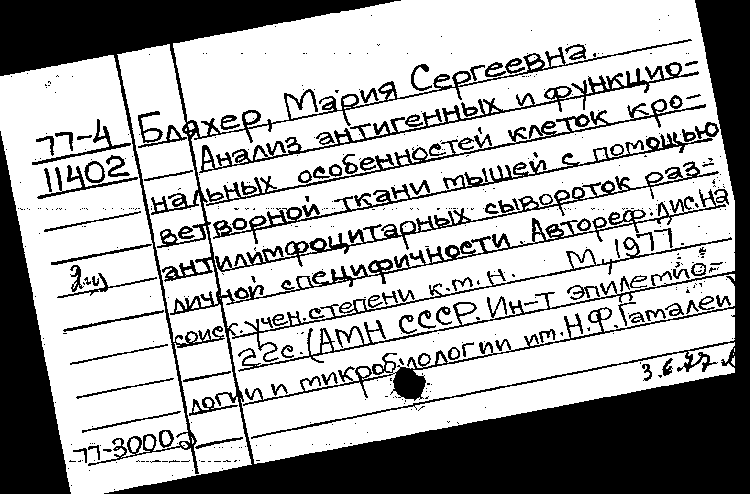 77-4
11402
Бляхер, Мария Сергеевна.
Анализ антигенных и функцио-
нальных особенностей клеток кро-
ветворной ткани мышей с помощью
антилимфоцитарных сывороток раз-
личной специфичности. Автореф. дис. на
соиск. учен. степени к.м.н. М., 1977.
22с. (АМН СССР. Ин-т эпидемио-
логии и микробиологии им. Н.Ф. Гамалеи)
3.6.77
77-3000